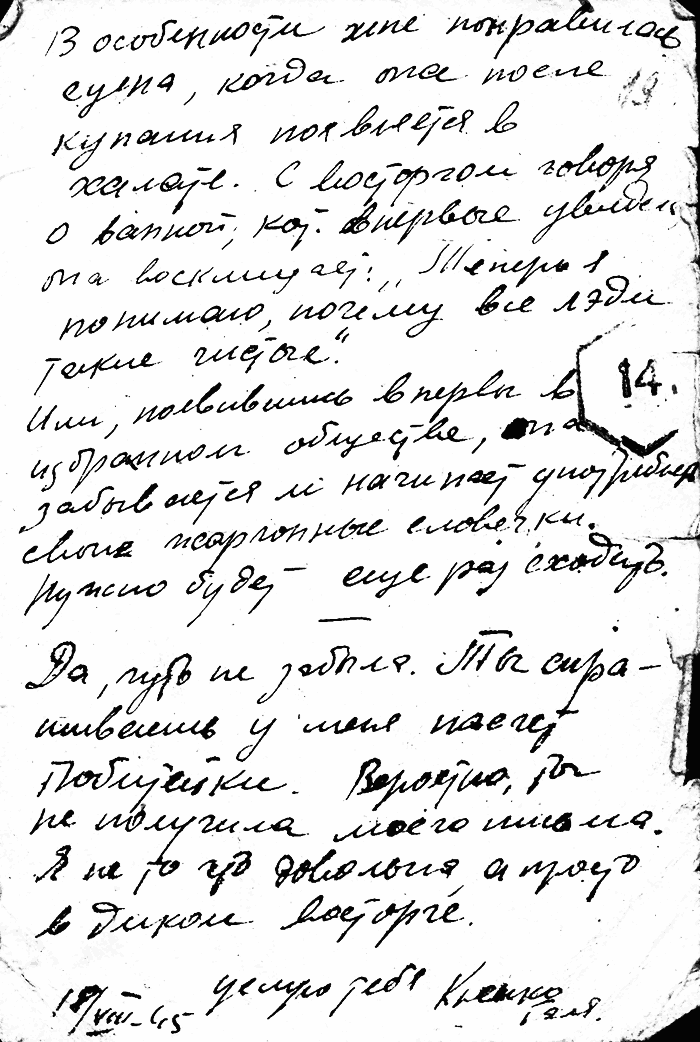 В особенности мне понравилась
сцена, когда она после
19
купания появляется в
халате. С восторгом говоря
о ванной, кот. впервые увидела,
она восклицает: „Теперь я
понимаю, почему все лэди
такие чистые".
14.
Или, появившись впервы в
избранном обществе, она
забывается и начинает употреблять
свои жаргонные словечки.
Нужно будет еще раз сходить.
Да, чуть не забыла. Ты спра-
шиваешь у меня насчет
Не получила моего письма.
Вероятно, ты
Я не то что довольна, а просто
в диком восторге.
целую тебя
Галя.
18/VIII-45